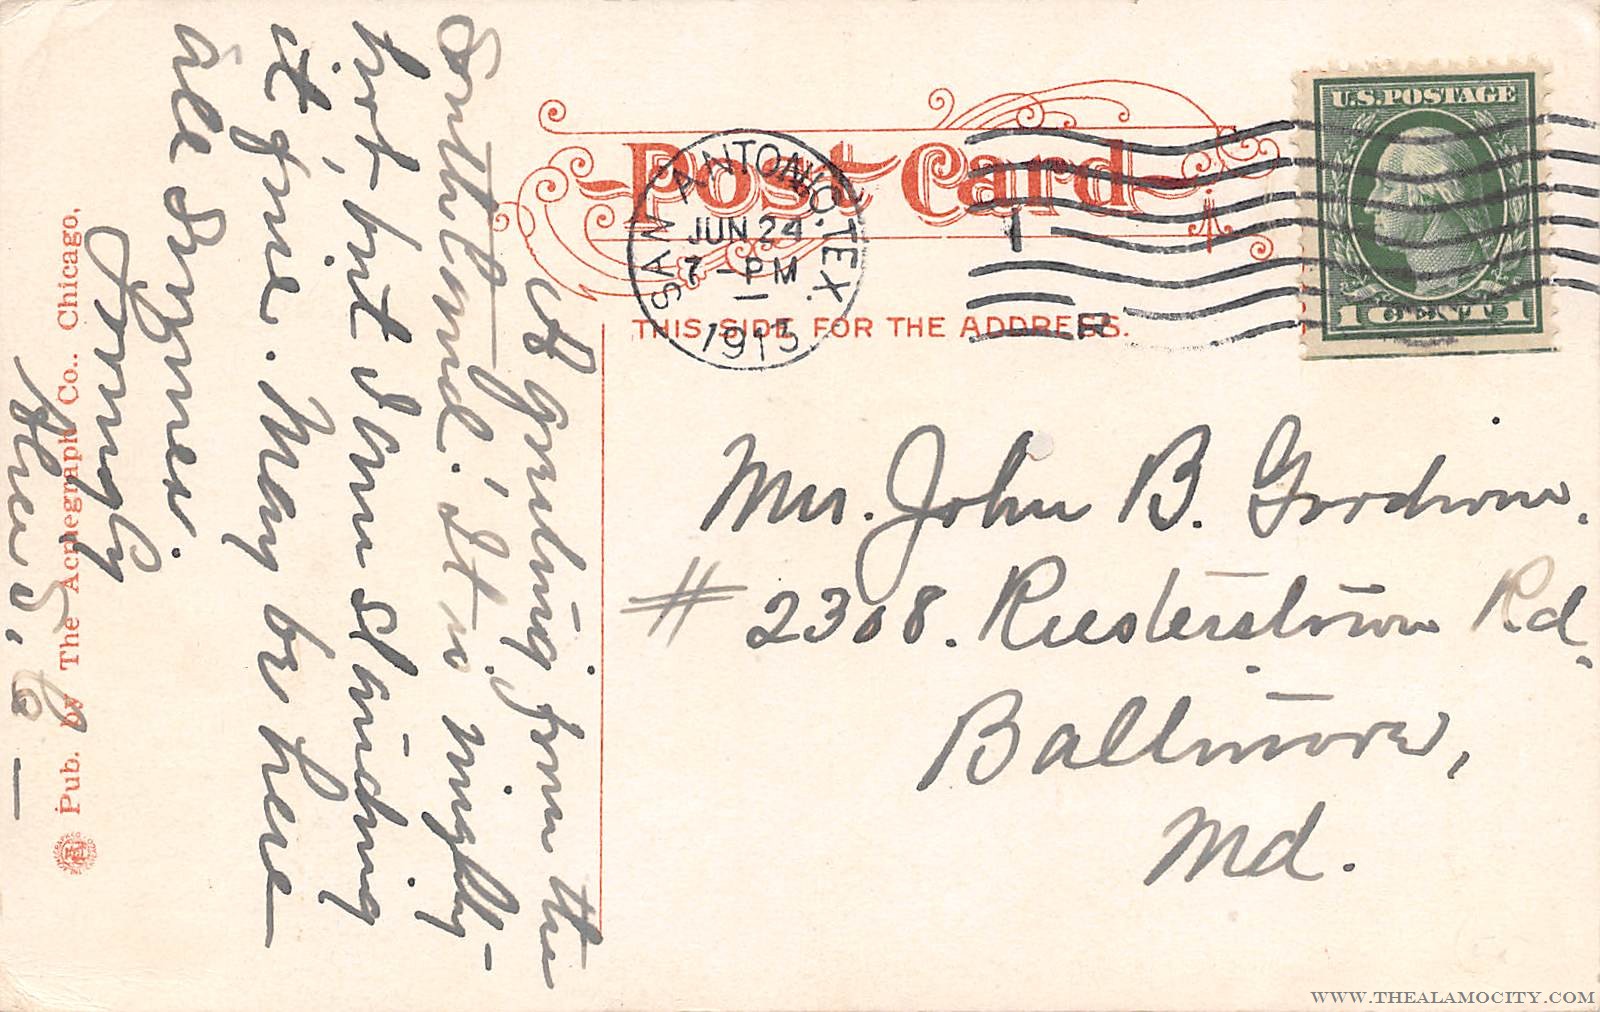 Post Card
THIS SIDE FOR THE ADDRESS.
SAN ANTONIO, TEX.
JUN 24
7-PM
1915
1
U.S. POSTAGE
1 CENT 1
A greeting from the
Southland. It is mighty
hot, but I am standing
it fine. May be here
all Summer.
Pub. by The Acmegraph Co.. Chicago,
Mr. John B.
# 2308. Reisterstown Rd.
Baltimore,
Md.
WWW.THEALAMOCITY.COM